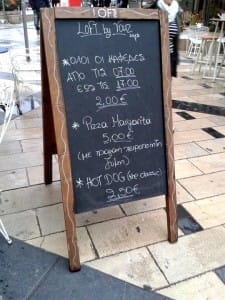 LOFT
LOFT by Your
cafe
* ΟΛΟΙ ΟΙ ΚΑΦΕΔΕΣ
ΑΠΟ ΤΙΣ 07.00
ΕΩΣ ΤΙΣ 17.00
2,00€
* Pizza Margarita
5,00€
(με
* HOT DOG (the classic)
2,50€
LOFT